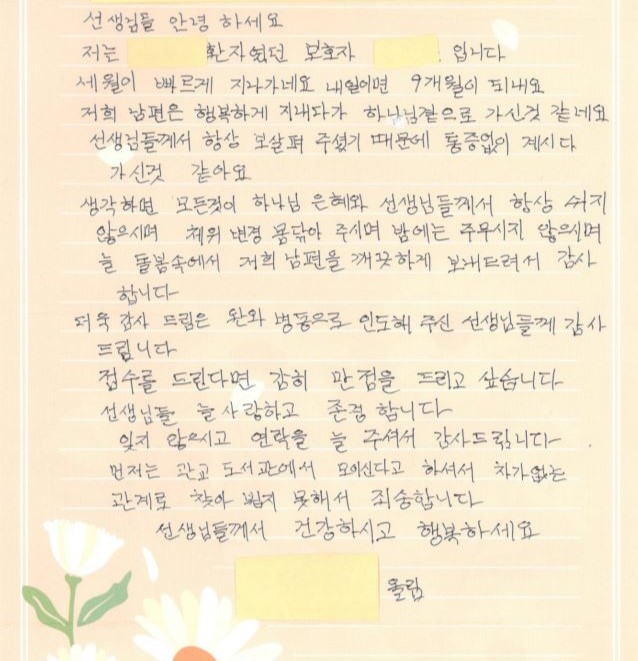 선생님들 안녕 하세요
저는 환자였던 보호자 입니다
세월이 빠르게 지나가네요 내일이면 9개월이 되내요
저희 남편은 행복하게 지내다가 하나님곁으로 가신것 같네요
선생님들께서 항상 보살펴 주셨기 때문에 통증없이 계시다
가신것 같아요
생각하면 모든것이 하나님 은혜와 선생님들께서 항상 쉬지
않으시며 체위 변경 몸닦아 주시며 밤에는 주무시지 않으시며
늘 돌봄속에서 저희 남편을 깨끗하게 보내드려서 감사
합니다
더욱 감사 드림은 완와 병동으로 인도해 주신 선생님들께 감사
드립니다
점수를 드린다면 감히 만점을 드리고 싶습니다
선생님들 늘사랑하고 존경합니다
잊지 않으시고 연락을 늘 주셔서 감사드립니다
먼저는 관교 도서관에서 모이신다고 하셔서 차가없는
관계로 찾아 뵙지 못해서 죄송합니다
선생님들께서 건강하시고 행복하세요
올림